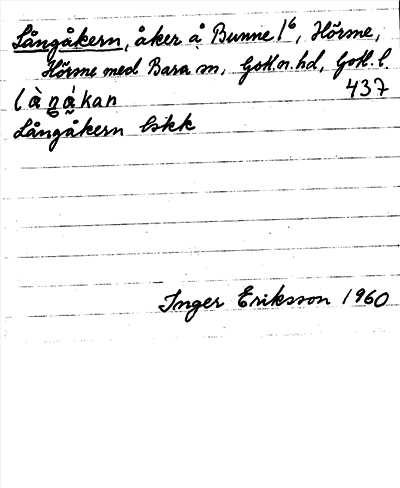 Långåkern, åker å Bunne 1⁶, Hörsne,
Hörsne med Bara sn, Gotl.n.hd, Gotl.l.
437
làŋákan
Långåkern bskk
Inger Eriksson 1960